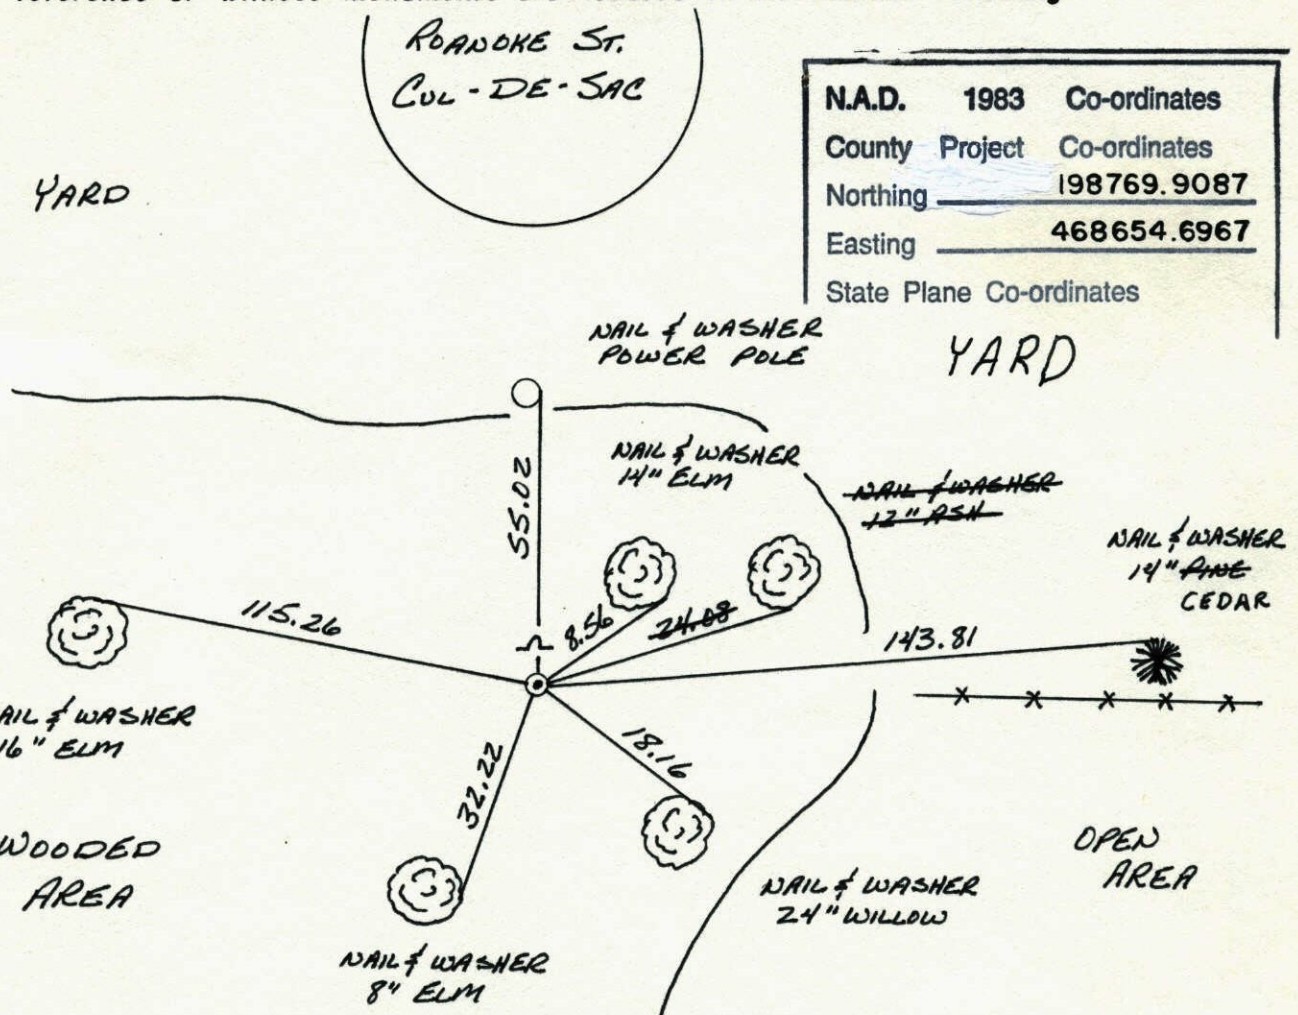 ROANOKE ST.
CUL-DE-SAC
N.A.D. 1983 Co-ordinates
County Project Co-ordinates
Northing 198769.9087
Easting 468654.6967
State Plane Co-ordinates
YARD
NAIL & WASHER
POWER POLE
YARD
55.02
NAIL & WASHER
14" ELM
NAIL & WASHER
12" ASH
NAIL & WASHER
14" PINE
CEDAR
115.26
8.56
24.08
143.81
AIL & WASHER
16" ELM
32.22
18.16
WOODED
AREA
NAIL & WASHER
24" WILLOW
OPEN
AREA
NAIL & WASHER
8" ELM